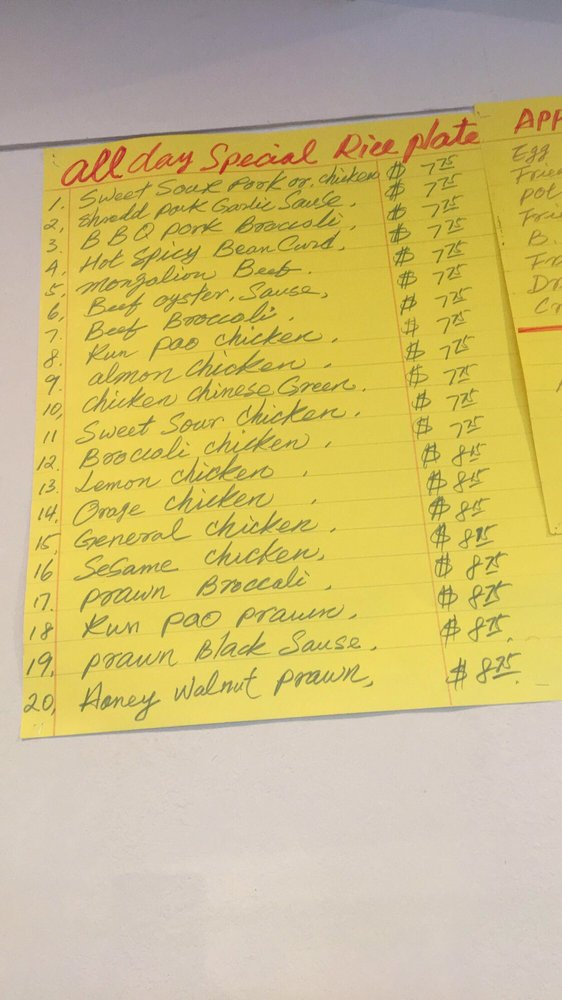 all day Special Rice plate
1. Sweet Sour pork or, chicken $ 7.75
2. Shredd pork Garlic Sause. $ 7.75
3. B B Q pork Broccoli. $ 7.75
4. Hot Spicy Bean Curd. $ 7.75
5. mongalion Beef. $ 7.75
6. Beef oyster. Sause. $ 7.75
7. Beef Broccoli. $ 7.75
8. Kun pao chicken. $ 7.75
9. almon chicken. $ 7.75
10. chicken chinese Green. $ 7.75
11 Sweet Sour Chicken. $ 7.75
12. Broccoli chicken. $ 7.75
13. Lemon chicken. $ 8.75
14. Orage chicken. $ 8.75
15. General chicken. $ 8.75
16 SeSame chicken. $ 8.75
17. prawn Broccali. $ 8.75
18. Kun pao prawn. $ 8.75
19. prawn Black Sause. $ 8.75
20. Honey walnut prawn. $ 8.75
APP
Egg
Frie
pot
Frie
B.
Fra
Dr
Cr